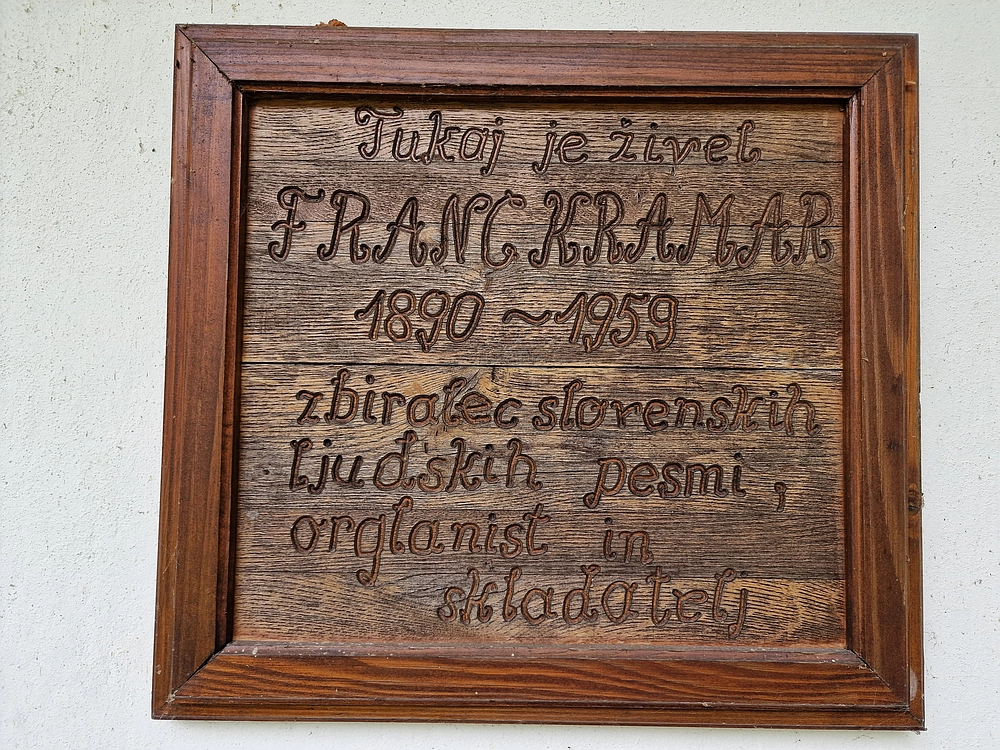 Tukaj je živel
FRANC KRAMAR
1890 ~ 1959
zbiralec slovenskih
ljudskih pesmi,
orglanist in
skladatelj